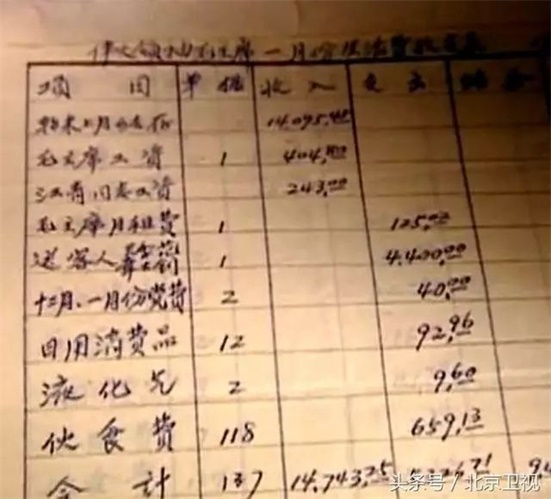 伟大领袖毛主席一月份生活费收支表
项目 单据 收入 支出 结余
上月 14,095.45
毛主席工资 1 404.80
江青同志工资 243.00
毛主席月租费 1 125.02
送客人 1 4,400.00
十二月、一月份党费 2 40.00
日用消费品 12 92.96
液化气 2 9.60
伙食费 118 659.13
合计 137 14,743.25 5,326.71 94
头条号 / 北京卫视